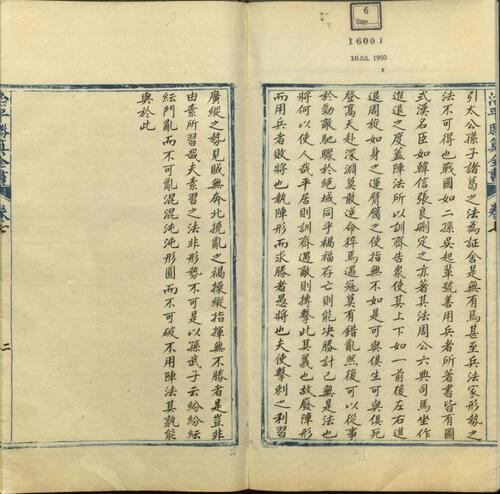 6
Copy
1600 J
10 JUL 1950
引太公孫子諸葛之法為証舍是無有焉甚至兵法家形勢之
法不可得也戰國如二孫吳起輩號善用兵者所著書皆有圖
式漢名臣如韓信張良刪定之亦著其法周公六典司馬坐作
進退之度蓋陣法所以訓齊眾使其上下如一前後左右進
退周旋如身之運臂臂之使指無不如是可與俱生可與俱死
登高天赴深淵莫敢逆命猝焉遇寇莫有錯亂然後可以從事
於勁敵馳驟於絕域同乎禍福存亡則能決勝計已無是法也
將何以使人哉平居則訓齊遇敵則搏擊此其義也故廢陣形
而用兵者敗將也執陣形而求勝者愚將也夫使擊刺之利習
廣縱之勢見賊無奔北撓亂之禍操縱指揮無不勝者是豈非
由素所習哉夫素習之法非形勢不可是以孫武子云紛紛紜
紜鬥亂而不可亂混混沌沌形圓而不可破不用陣法其孰能
與於此
治平勝算全書
卷七
二